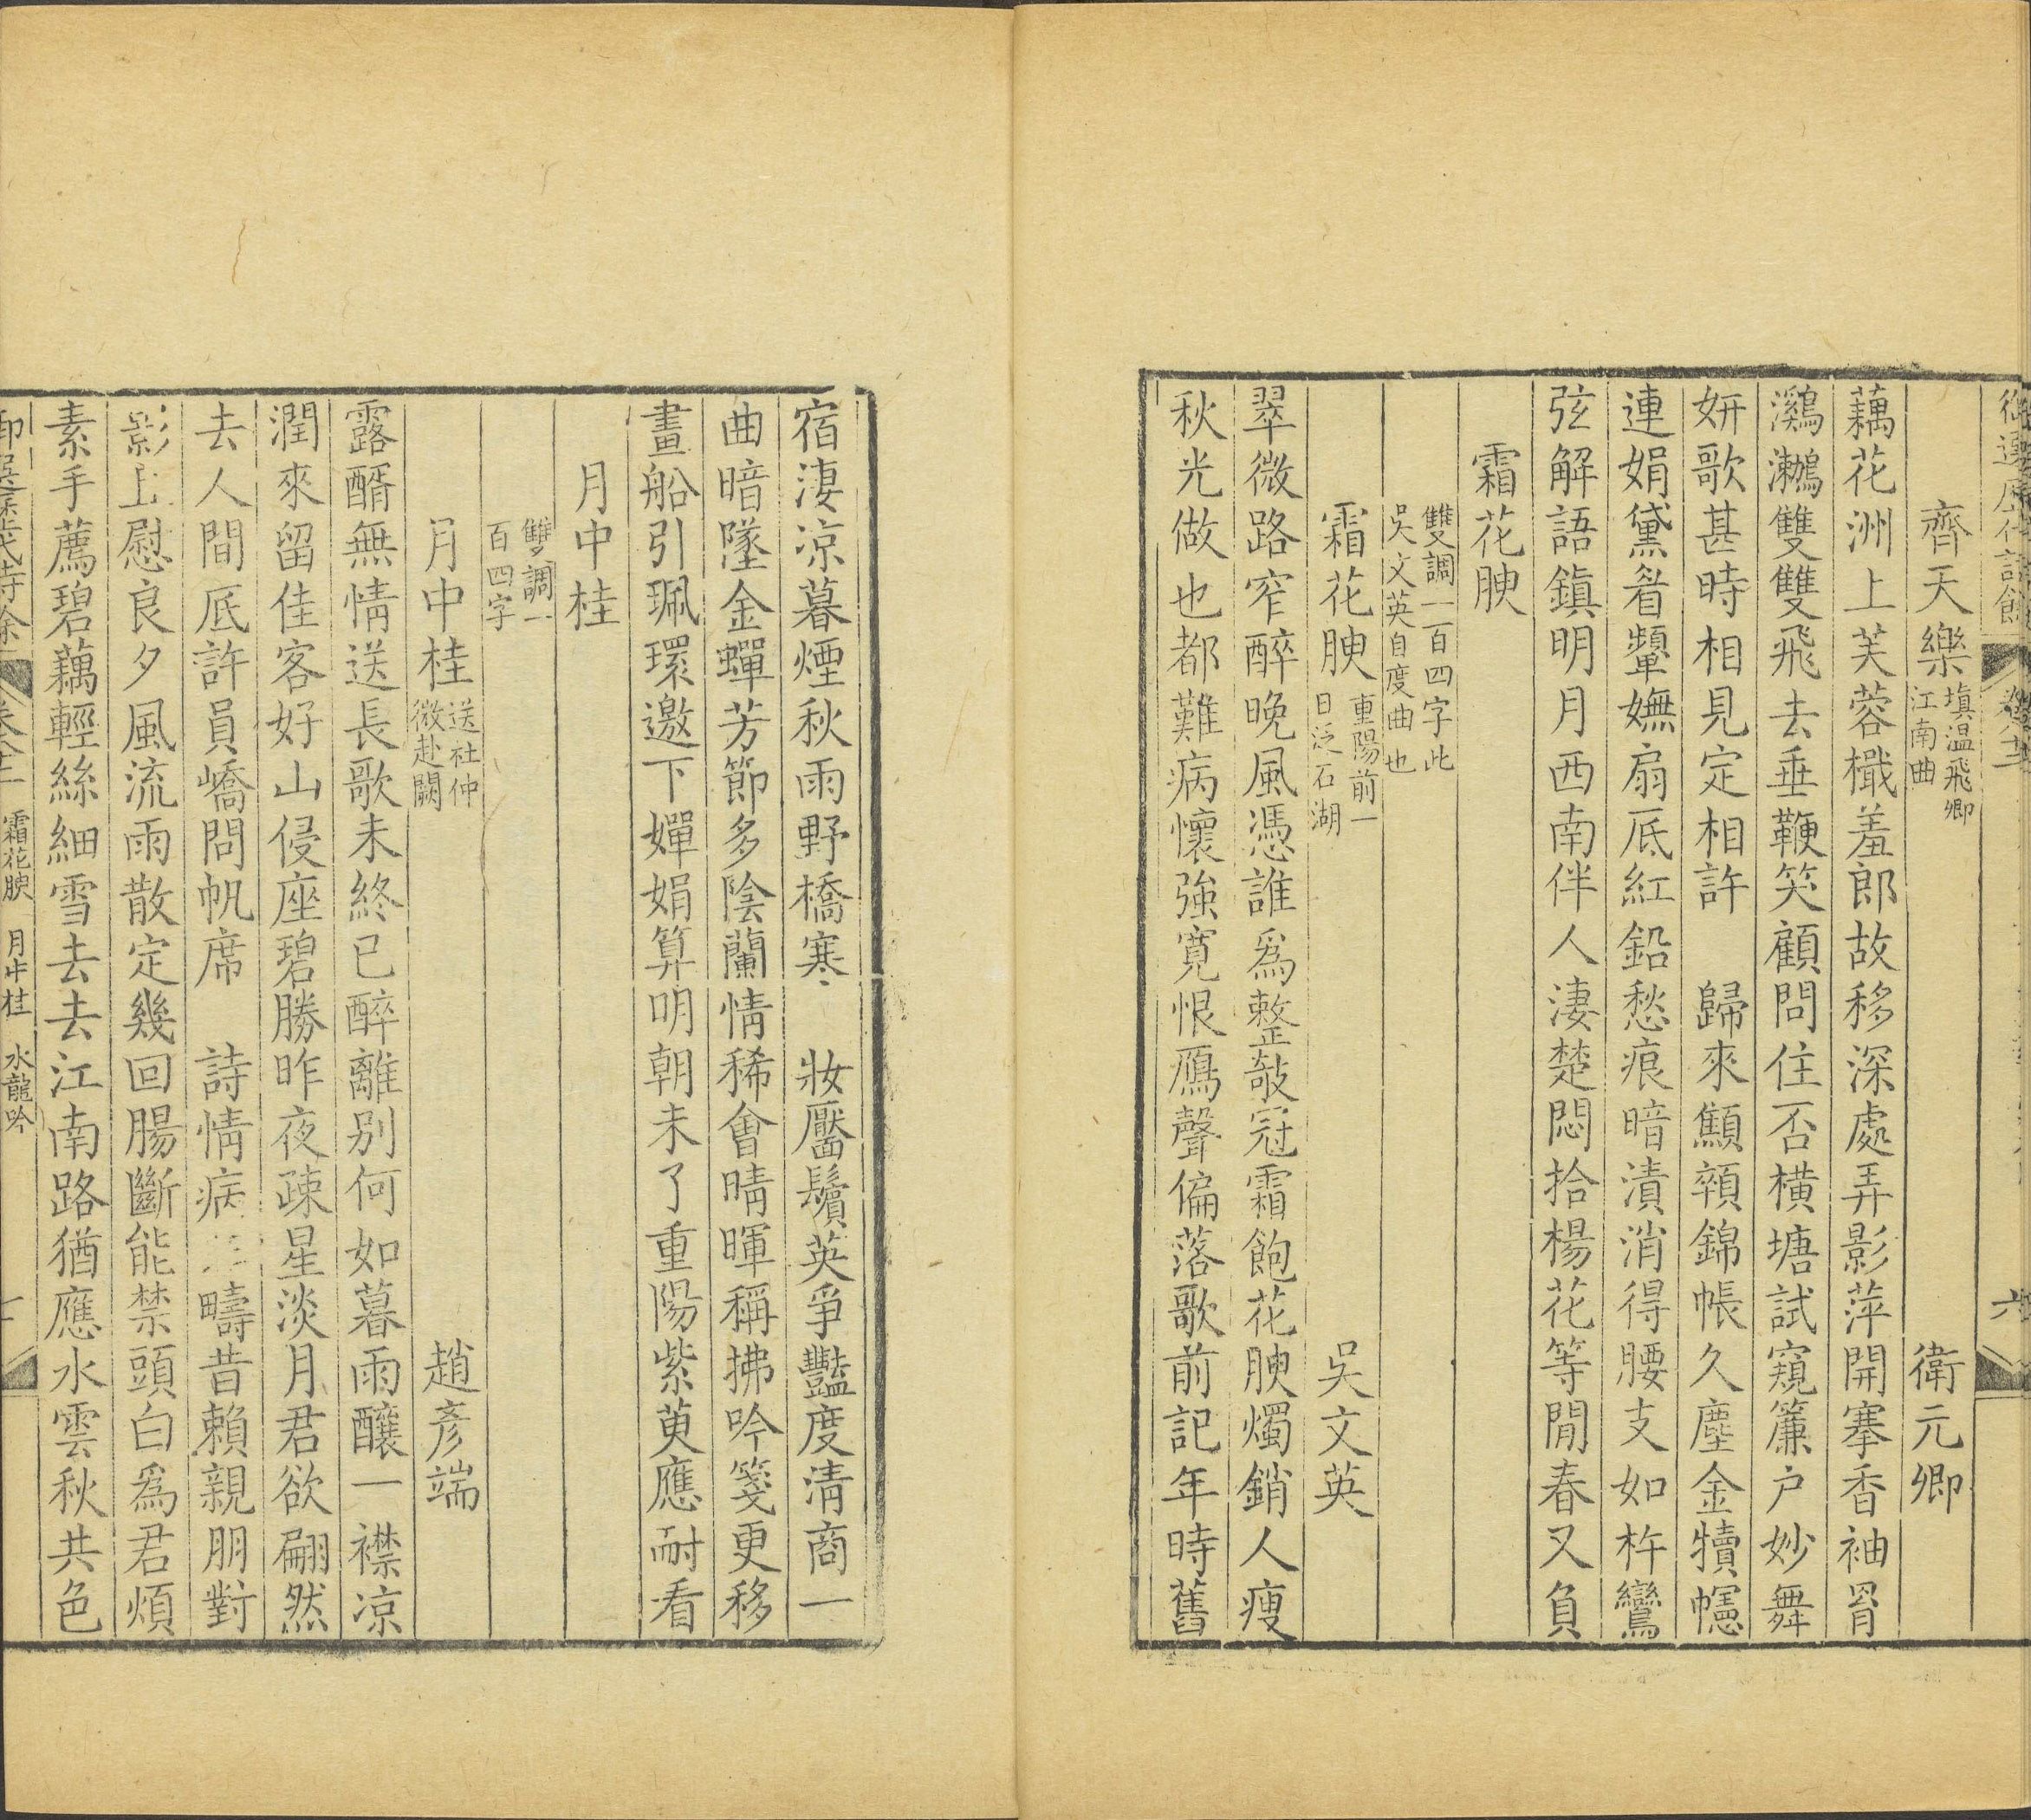 御選歷代詩餘 卷 六
齊天樂 填温飛卿江南曲 衛元卿
藕花洲上芙蓉檝羞郎故移深處弄影萍開搴香袖罥
鸂鶒雙雙飛去垂鞭笑顧問住否橫塘試窺簾户妙舞
妍歌甚時相見定相許 歸來顦顇錦帳久塵金犢幰
連娟黛眉顰嫵扇厎紅鉛愁痕暗漬消得腰支如杵鸞
弦解語鎮明月西南伴人淒楚悶拾楊花等閒春又負
霜花腴
雙調一百四字此
吳文英自度曲也
霜花腴 重陽前一日泛石湖 吳文英
翠微路窄醉晚風憑誰爲整敧冠霜飽花腴燭銷人瘦
秋光做也都難病懷強寛恨鴈聲偏落歌前記年時舊
宿淒涼暮煙秋雨野橋寒 妝靨鬢英爭豔度清商一
曲暗墜金蟬芳節多陰蘭情稀會晴暉稱拂吟箋更移
畫船引珮環邀下嬋娟算明朝未了重陽紫萸應耐看
月中桂
雙調一
百四字
月中桂 送杜仲微赴闕 趙彥端
露醑無情送長歌未終已醉離别何如暮雨釀一襟凉
潤來留佳客好山侵座碧勝昨夜疎星淡月君欲翩然
去人間厎許員嶠問帆席 詩情病 疇昔賴親朋對
影且慰良夕風流雨散定幾回腸斷能禁頭白爲君煩
素手薦碧藕輕絲細雪去去江南路猶應水雲秋共色
御選歷代詩餘 卷 霜花腴 月中桂 水龍吟 七